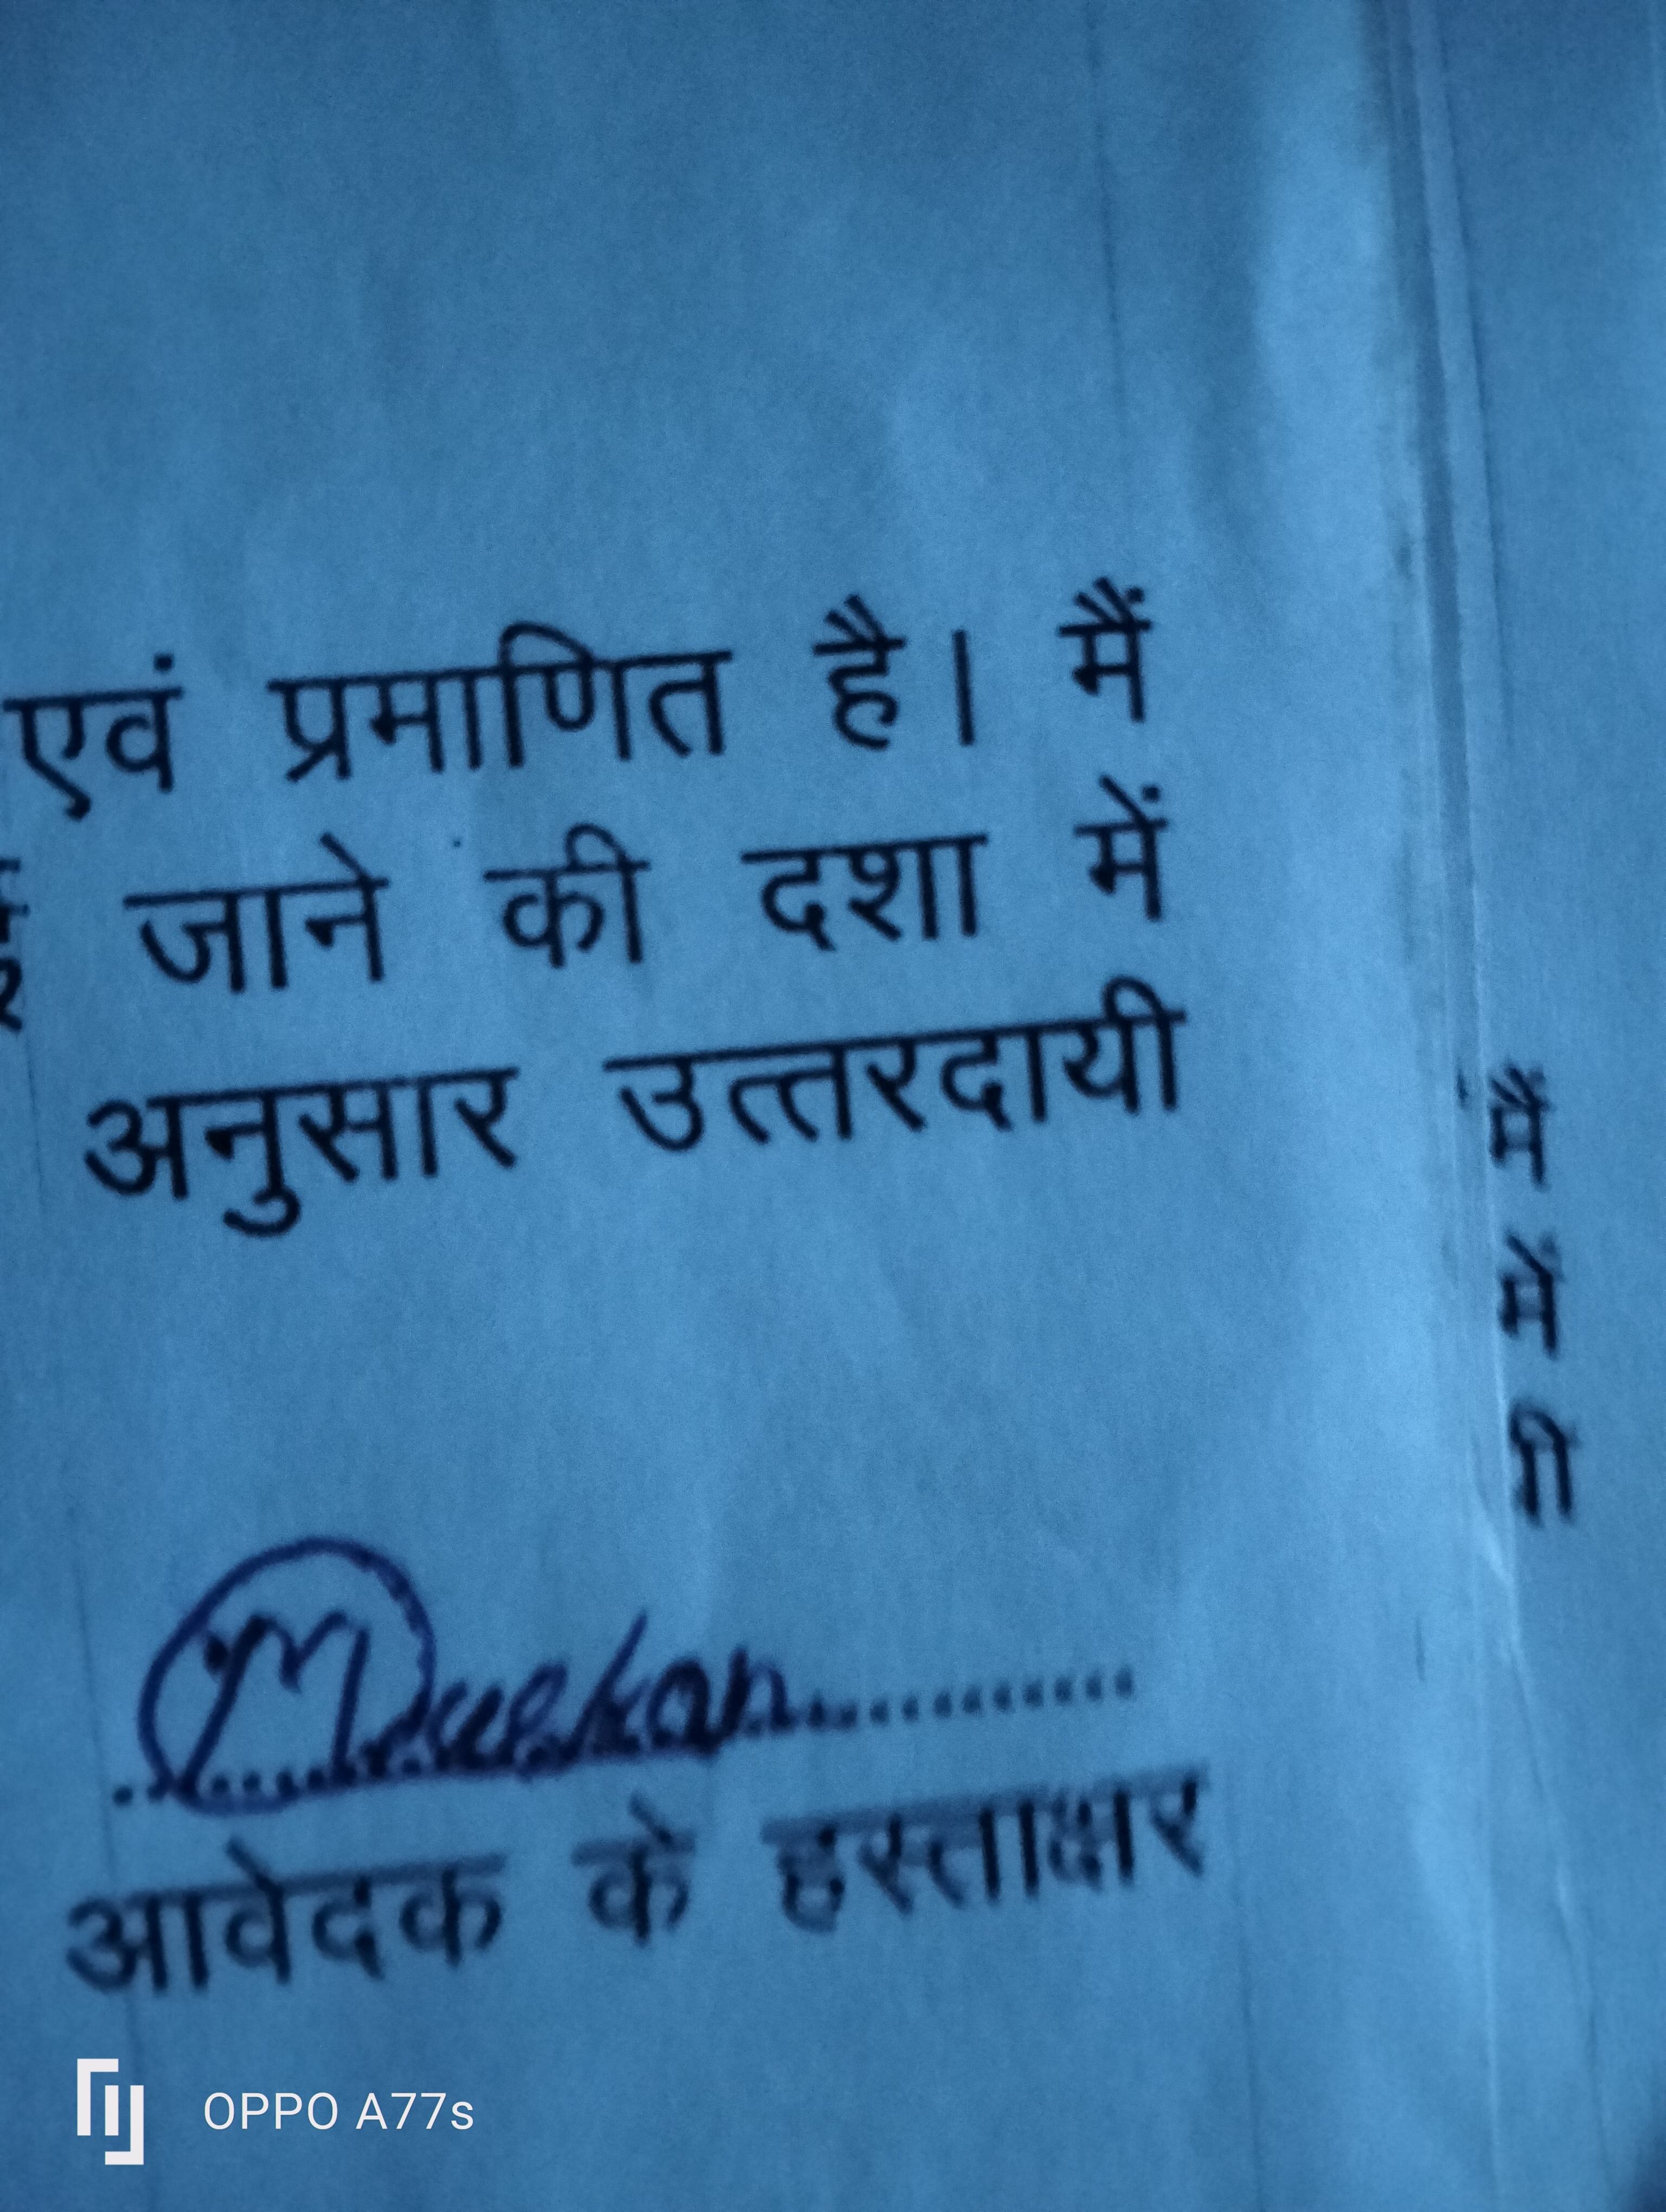 एवं प्रमाणित है। मैं
जाने की दशा में
अनुसार उत्तरदायी
मैं
में
Muskan
आवेदक के हस्ताक्षर
OPPO A77s